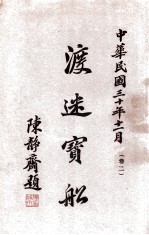 中華民國三十年十一月
(卷二)
渡迷寶船
陳靜齋題